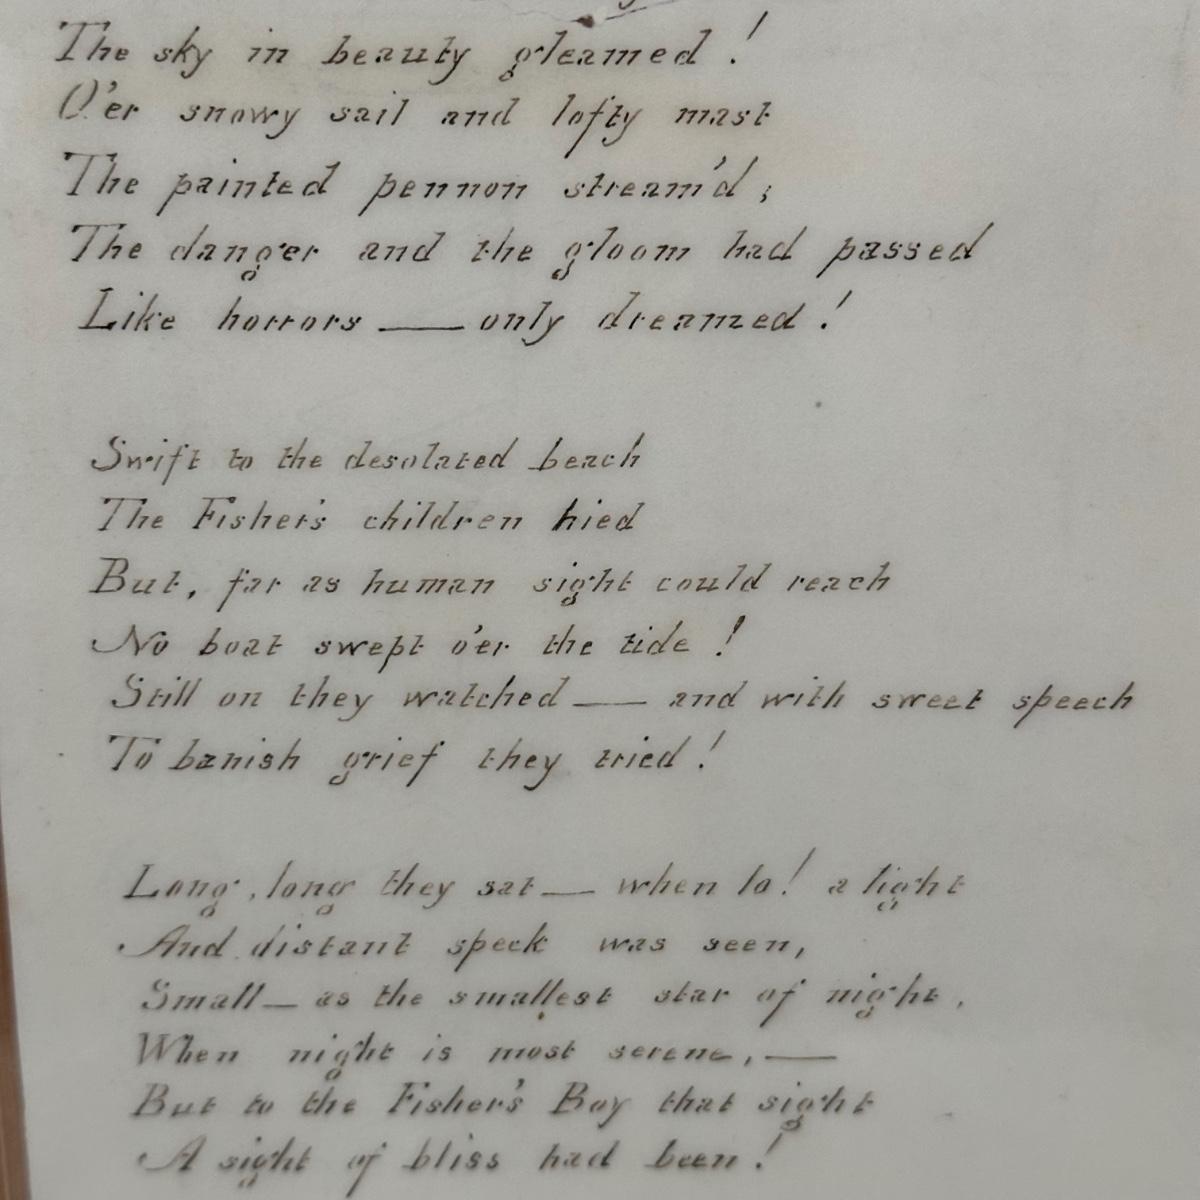 The sky in beauty gleamed !
O'er snowy sail and lofty mast
The painted pennon stream'd ;
The danger and the gloom had passed
Like horrors — only dreamed !
Swift to the desolated beach
The Fisher's children hied
But, far as human sight could reach
No boat swept o'er the tide !
Still on they watched — and with sweet speech
To banish grief they tried !
Long, long they sat — when lo! a light
And distant speck was seen,
Small — as the smallest star of night,
When night is most serene, —
But to the Fisher's Boy that sight
A sight of bliss had been !